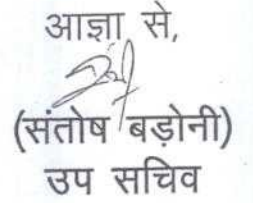 आज्ञा से,
(संतोष बड़ोनी)
उप सचिव